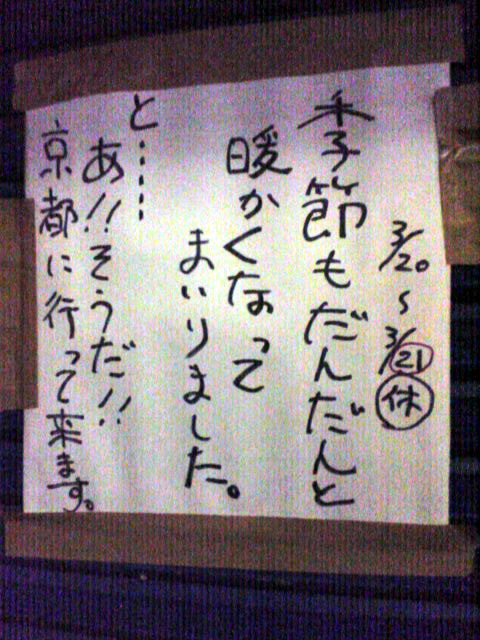 3/20〜3/21 休
季節もだんだんと
暖かくなって
まいりました。
と……
あ!!そうだ!!
京都に行って来ます。